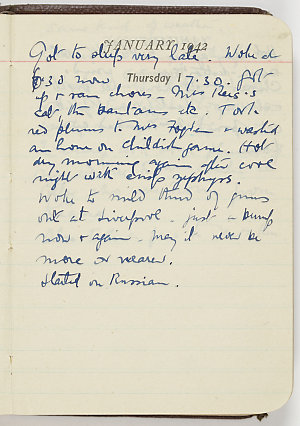 JANUARY 1942
Got to sleep very late. Woke at
6.30 now Thursday 1 7.30. got
up & ran chores - Mrs Reis's
cat, the bantams etc. Took
red plums to Mrs & washed
am home on childish game. Hot
day morning again after cool
night with crisp zephyrs.
Woke to mild thud of guns
out at Liverpool. just a bump
now & again. May it never be
more or nearer.
Started on Russian.